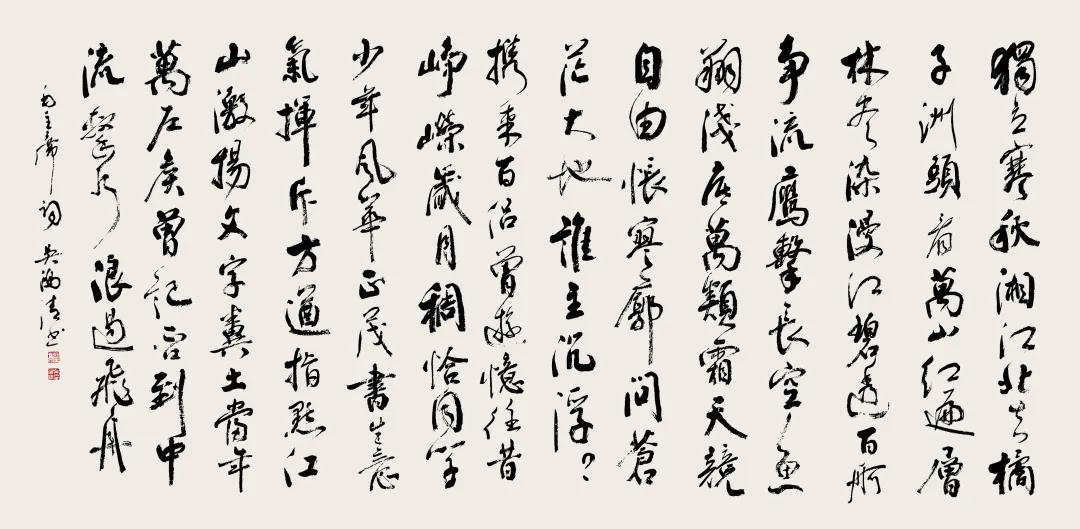 獨立寒秋湘江北去橘
子洲頭看萬山红遍層
林尽染漫江碧透百舸
争流鷹擊長空魚
翔淺底萬類霜天競
自由悵寥廓問蒼
茫大地誰主沉浮?
携来百侣曾遊憶往昔
崢嶸歲月稠恰同学
少年風華正茂書生意
氣揮斥方遒指點江
山激揚文字糞土當年
萬户侯曾記否到中
流擊水浪遏飛舟
毛主席詞